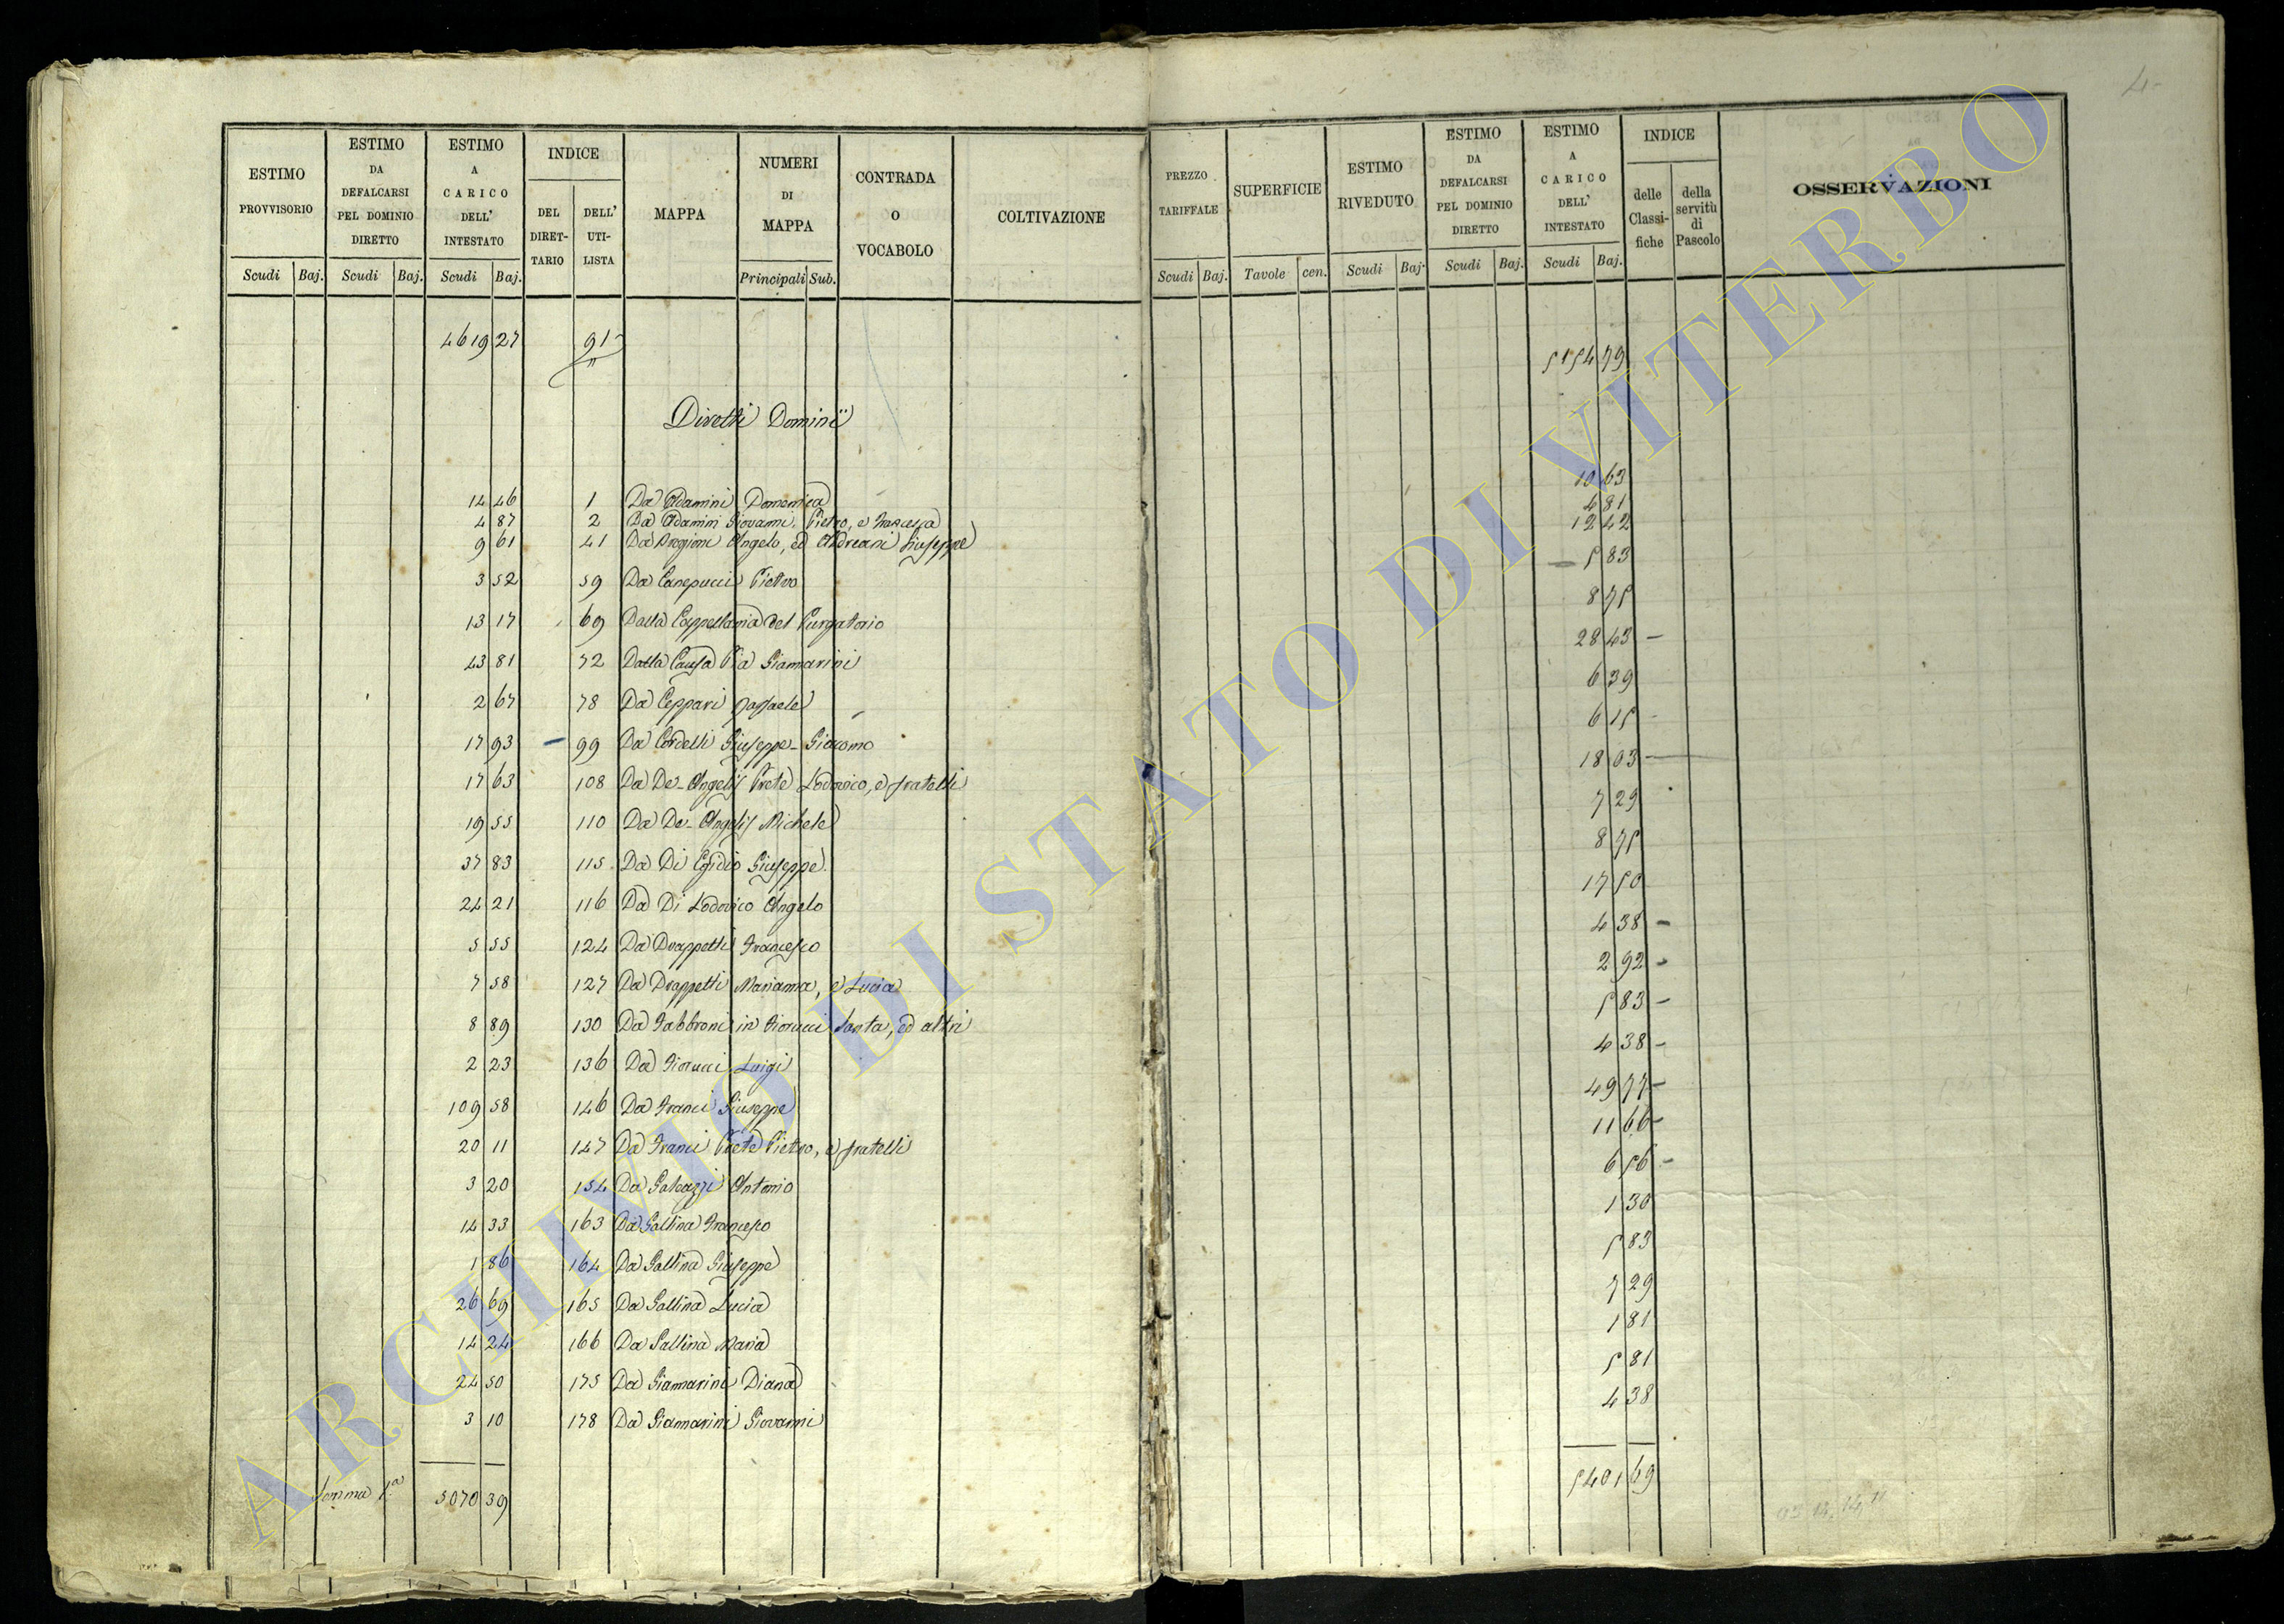 4
ESTIMO PROVVISORIO
ESTIMO DA DEFALCARSI PEL DOMINIO DIRETTO
ESTIMO A CARICO DELL' INTESTATO
INDICE
DEL DIRET-TARIO
DELL' UTI-LISTA
MAPPA
NUMERI DI MAPPA
CONTRADA O VOCABOLO
COLTIVAZIONE
PREZZO TARIFFALE
SUPERFICIE
ESTIMO RIVEDUTO
ESTIMO DA DEFALCARSI PEL DOMINIO DIRETTO
ESTIMO A CARICO DELL' INTESTATO
INDICE
delle Classi-fiche
della servitù di Pascolo
OSSERVAZIONI
Scudi Baj. Scudi Baj. Scudi Baj. Principali Sub. Scudi Baj. Tavole cen. Scudi Baj. Scudi Baj. Scudi Baj.
4619 27 91 5154 79
Diretti Dominii
14 46 1 Da Adamini Domenica 10 63
4 87 2 Da Adamini Giovanni, Pietro, e Francesca 4 81
9 61 41 Da Angelo, ed Andreani Giuseppe 12 42
3 52 59 Da Canepucci Pietro 5 83
13 17 69 Dalla Cappellania del Purgatorio 8 75
43 81 72 Dalla Causa Pia Giamarini 28 43 —
2 67 78 Da Ceppari Raffaele 6 39
17 93 — 99 Da Cordelli Giuseppe-Giacomo 6 15 -
17 63 108 Da De-Angelis Prete Lodovico, e fratelli 18 03 —
19 55 110 Da De-Angelis Michele 7 29
37 83 115 Da Di Egidio Giuseppe 8 75
24 21 116 Da Di Lodovico Angelo 17 50
5 55 124 Da Drappetti Francesco 4 38 -
7 58 127 Da Drappetti Marianna, e Lucia 2 92 -
8 89 130 Da Fabbroni in Fiorucci Santa, ed altri 5 83 -
2 23 136 Da Fiorucci Luigi 4 38 -
109 58 146 Da Franci Giuseppe 49 77 -
20 11 147 Da Franci Prete Pietro, e fratelli 11 66 -
3 20 154 Da Galeazzi Antonio 6 56 -
14 33 163 Da Gallina Francesco 1 30
1 86 164 Da Gallina Giuseppe 5 83
26 69 165 Da Gallina Lucia 7 29
14 24 166 Da Gallina Maria 1 81
24 50 175 Da Giannarini Diana 5 81
3 10 178 Da Giannarini Giovanni 4 38
Somma 1.a 5070 39 5401 69
ARCHIVIO DI STATO DI VITERBO